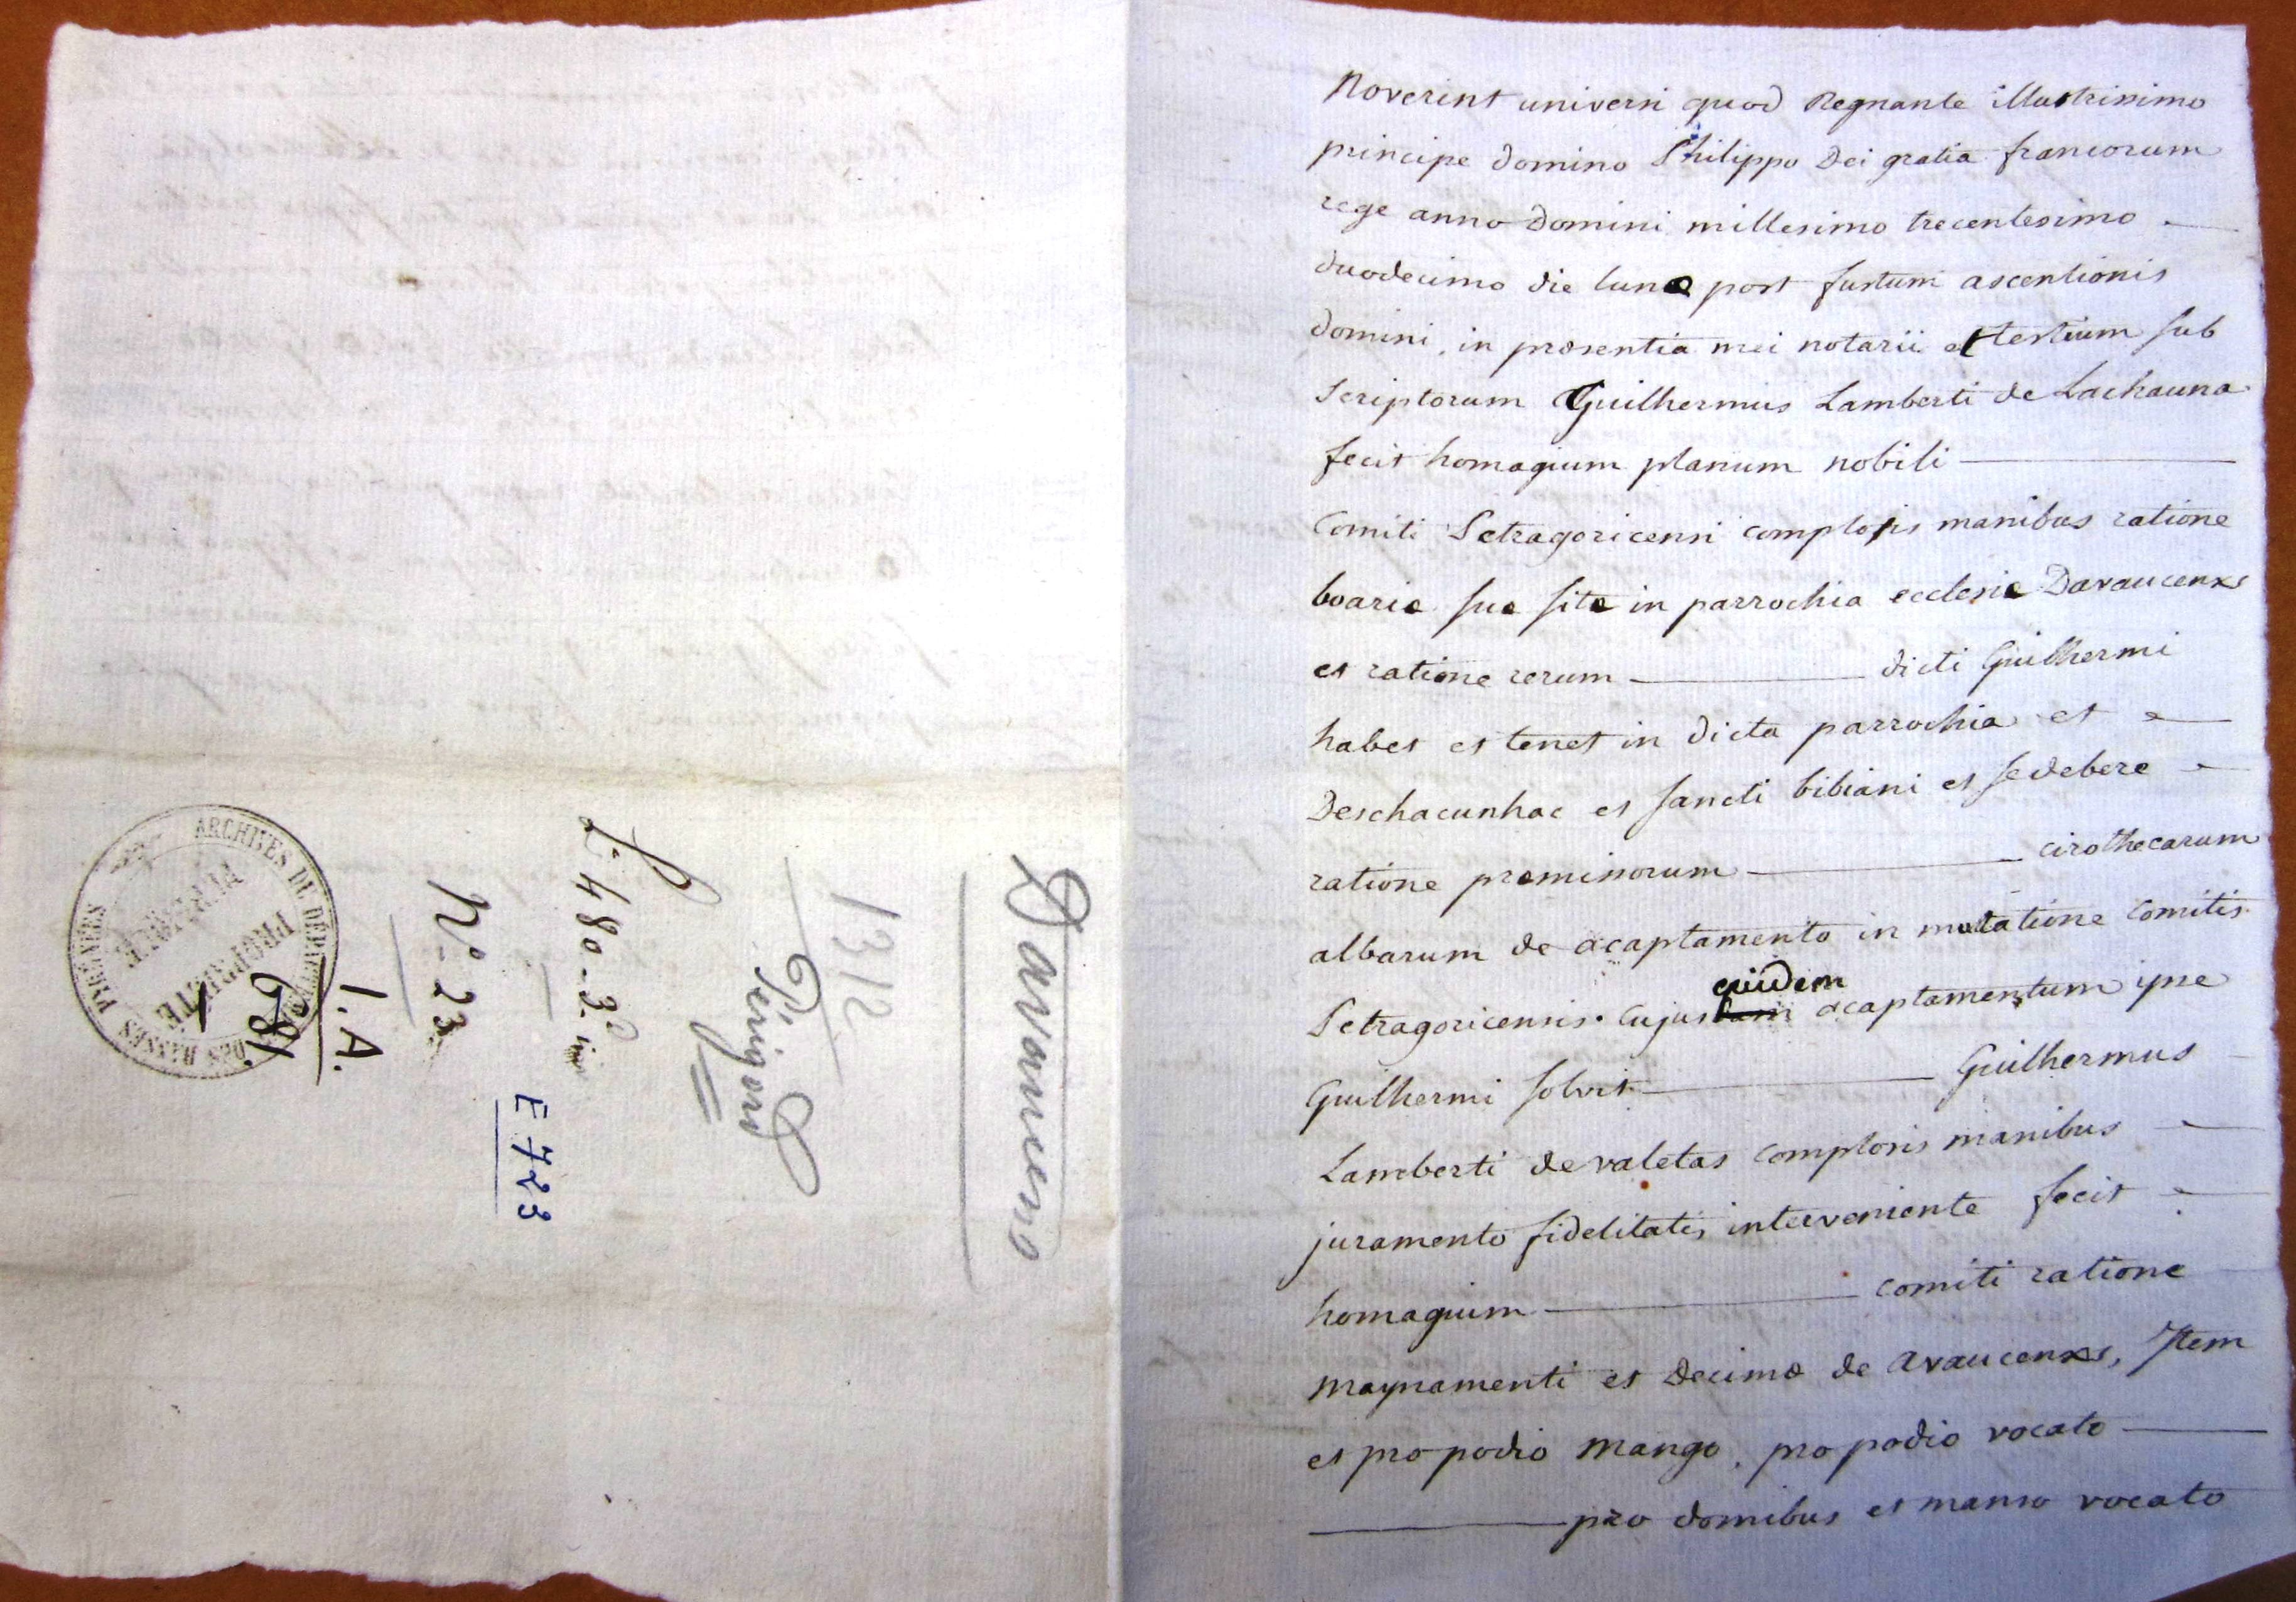 Davaucens
1312
Périgord
L. 480-3.
E 723
N.º 23
1. A.
681.
ARCHIVES DU DÉPARTEMENT DES BASSES PYRÉNÉES
PROPRIÉTÉ
PUBLIQUE
Noverint universi quod Regnante illustrisimo
principe domino Philippo Dei gratia francorum
rege anno Domini millesimo trecentesimo
duodecimo die lunæ post festum ascentionis
domini, in præsentia mei notarii et testium sub
scriptorum Guilhermus Lamberti de Lachauna
fecit homagium planum nobili
Comiti Petragoricensi complosis manibus ratione
boariæ suæ sitæ in parrochia ecclesiæ Davaucenxs
et ratione rerum dicti Guilhermi
habet et tenet in dicta parrochia et
Deschacunhac et sancti bibiani et se debere
ratione præmissorum cirothecarum
albarum de acaptamento in mutatione Comitis
Petragoricensis. Cujus quidem acaptamentum ipse
Guilhermi solvit Guilhermus
Lamberti de valetas complosis manibus
juramento fidelitatis interveniente fecit
homagium comiti ratione
maynamenti et decimæ de avaucenxs, Item
et pro podio mango, pro podio vocato
pro domibus et manso vocato